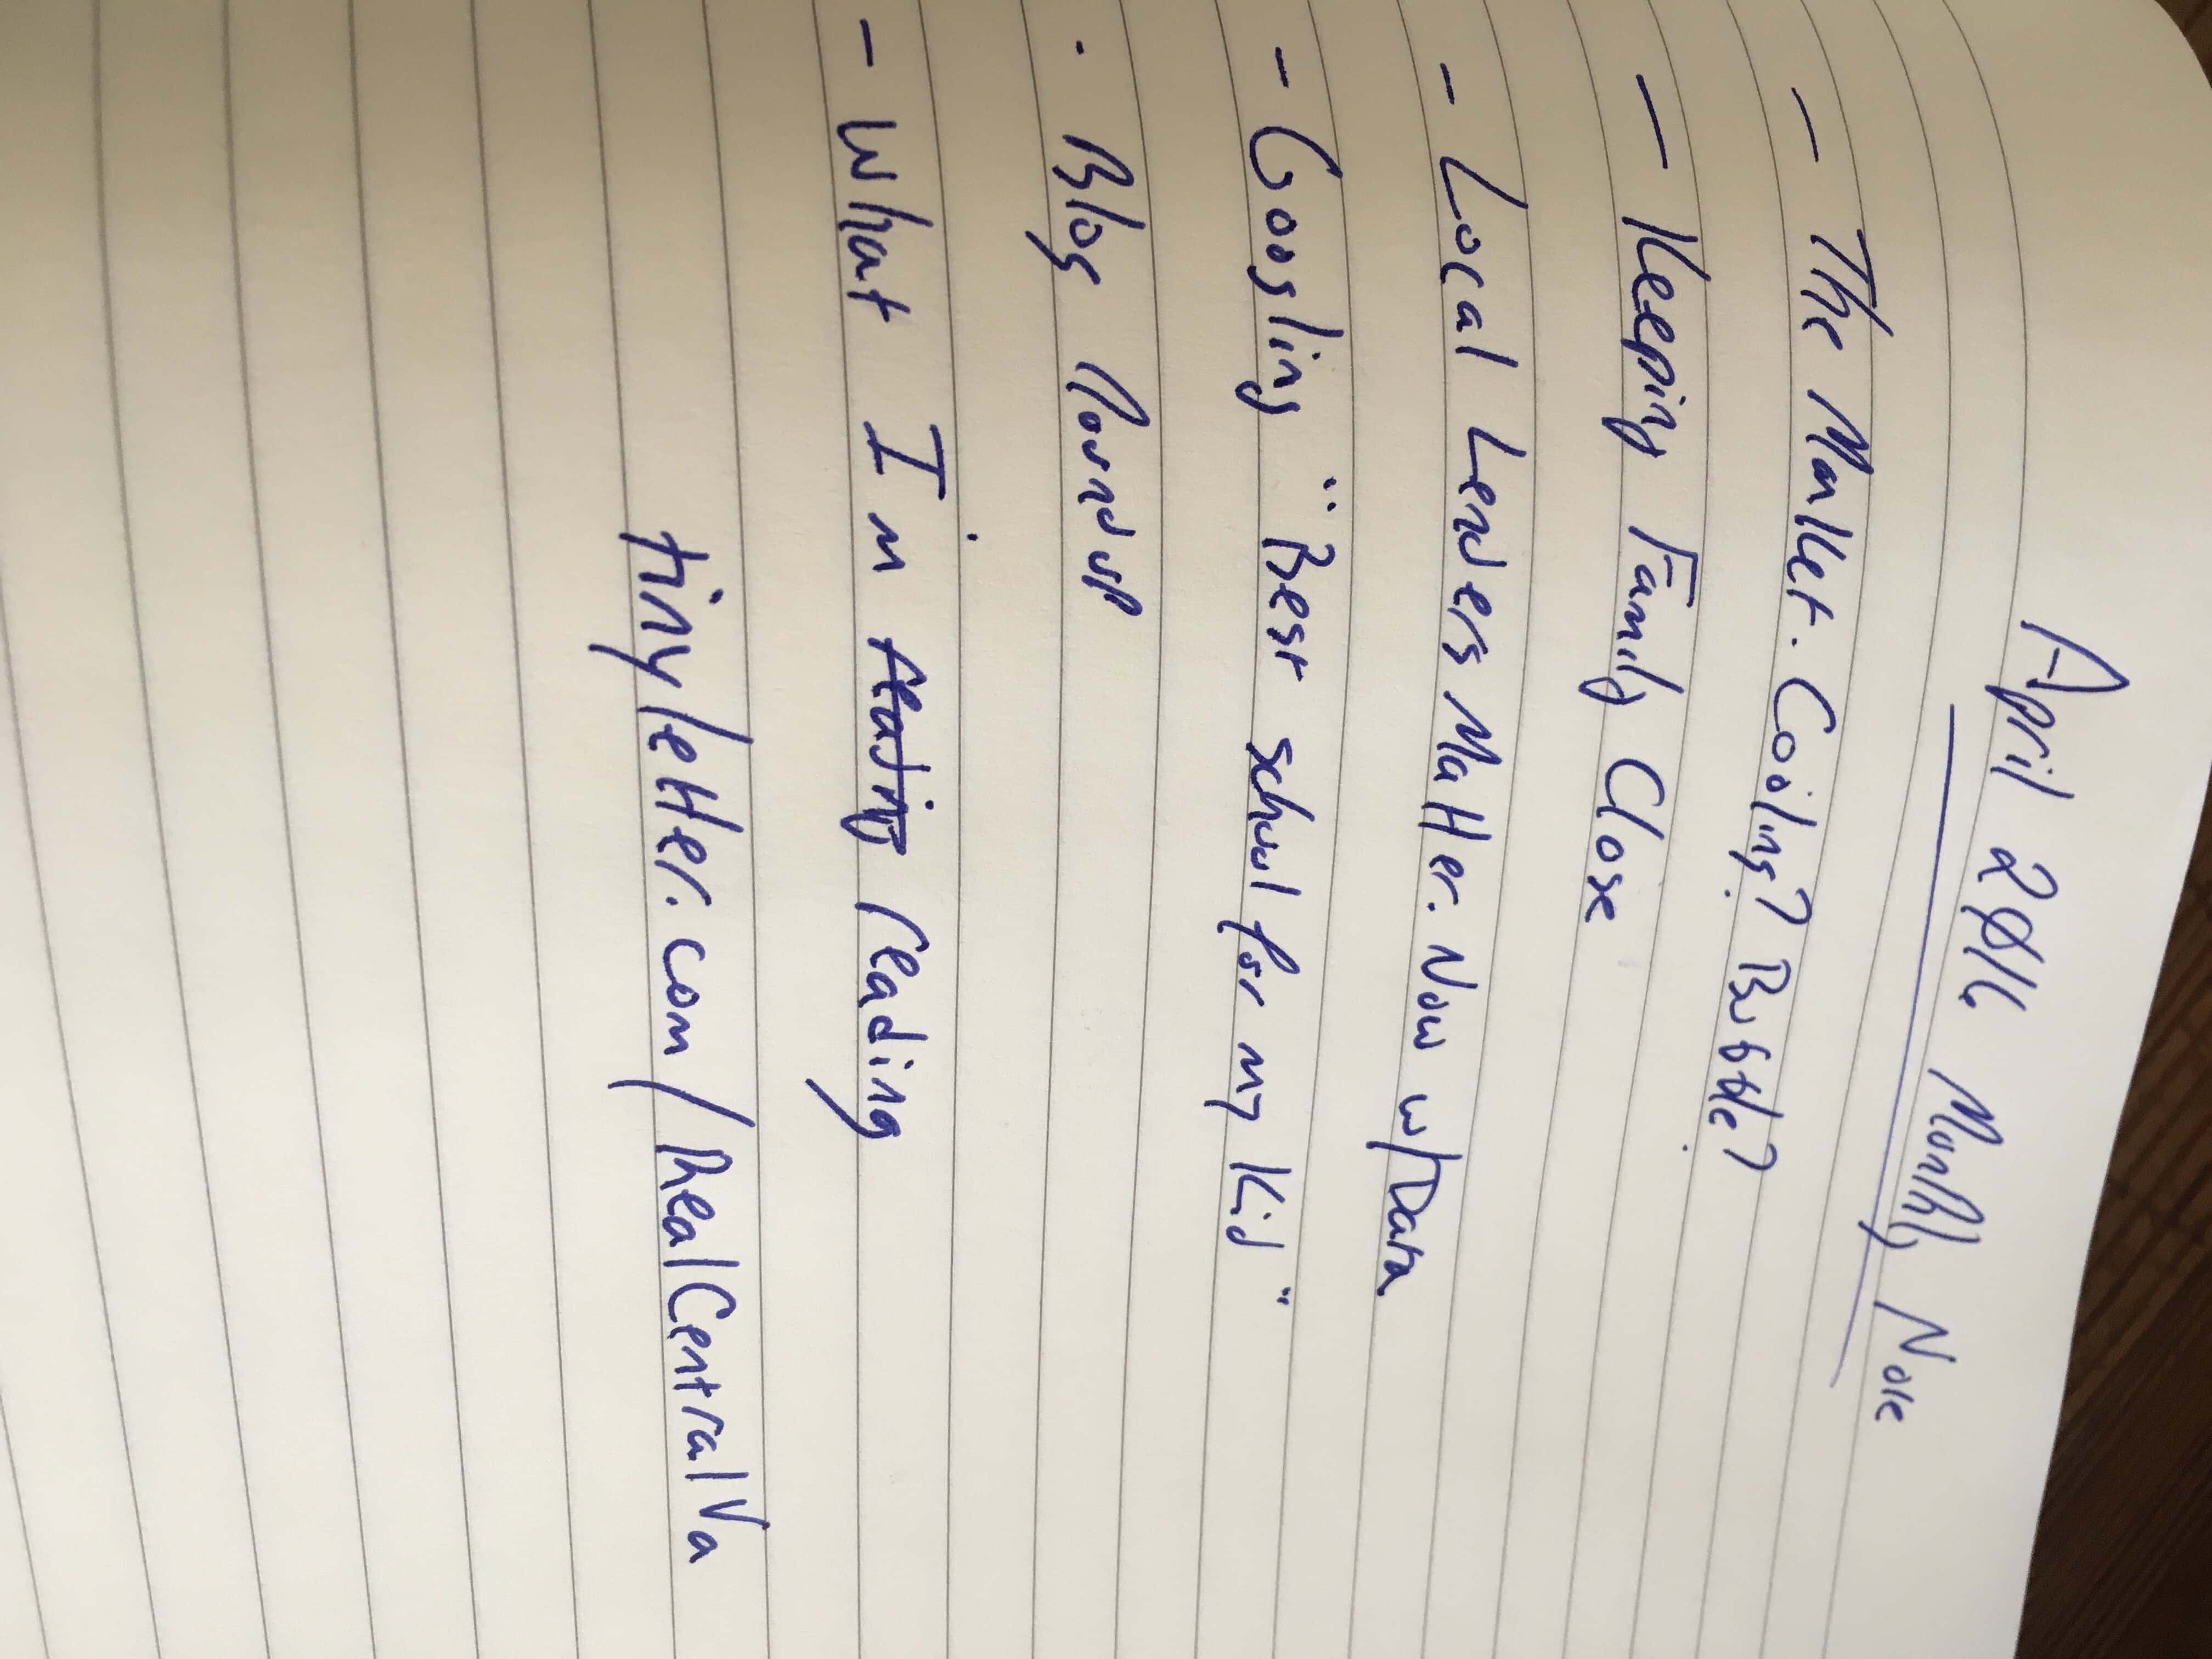 April 2016 Monthly Note
- The Market. Cooling? Bubble?
- Keeping Family Close
- Local Lenders Matter. Now w/Data
- Googling "Best school for my Kid"
. Blog Roundup
- What I'm reading reading
tinyletter.com/RealCentralVa